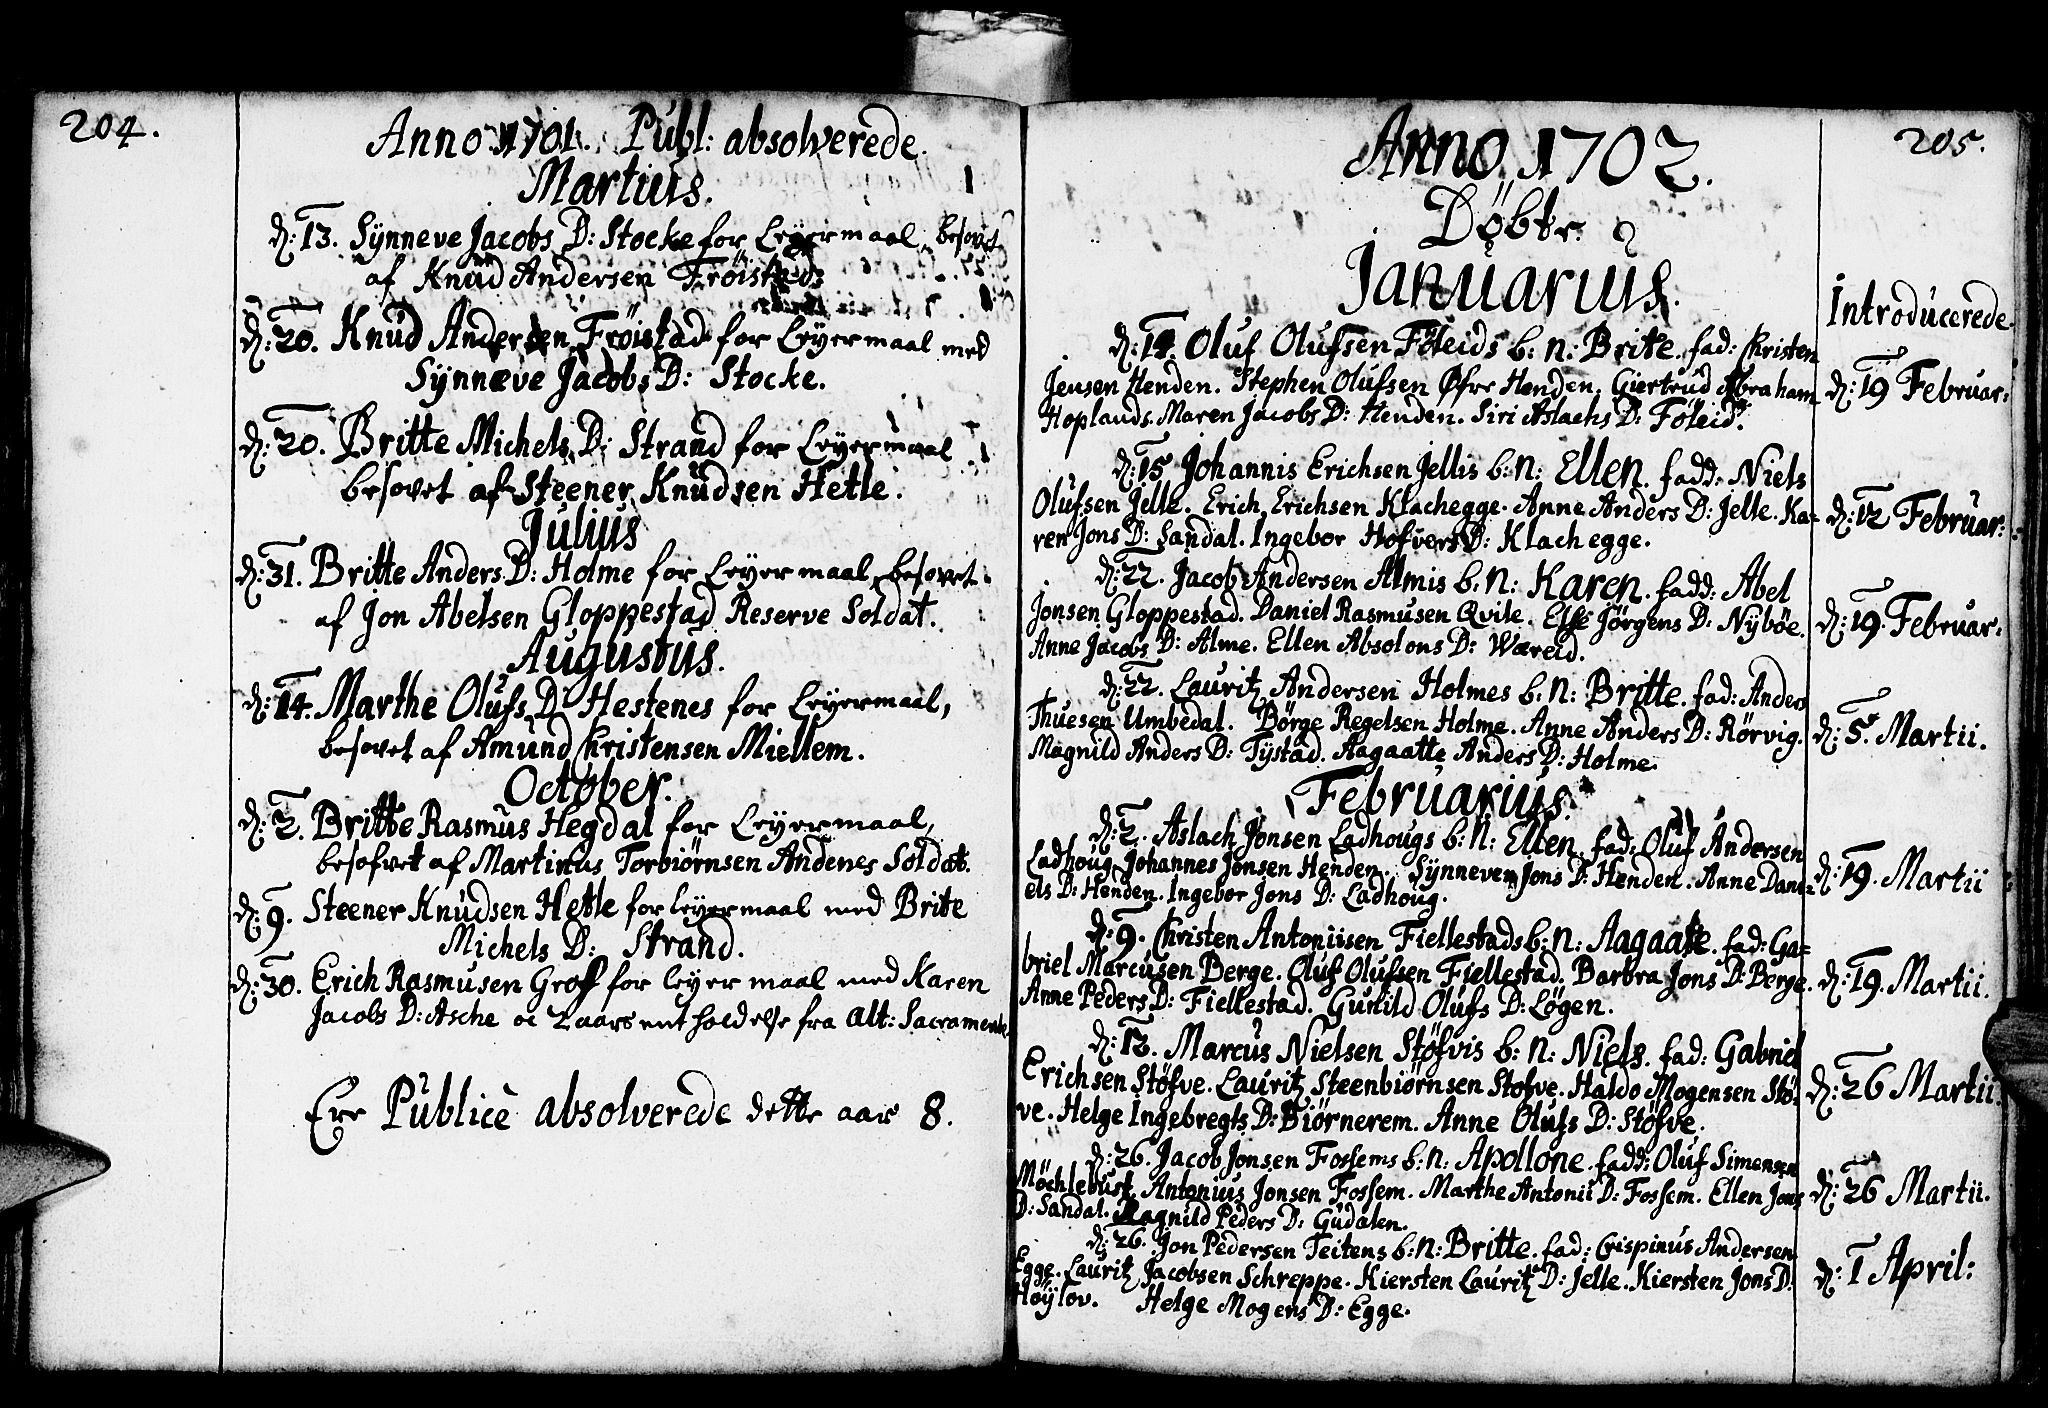 204.
Anno 1701. Publ: absolverede.
Martius.
d: 13. Synneve Jacobs D: Stocke for Leyermaal, besovet
af Knud Andersen Frøistad:
d: 20. Knud Andersen Frøistad for Leyermaal med
Synneve Jacobs D: Stocke.
d: 20. Britte Michels D: Strand for Leyermaal
besovet af Steener Knudsen Hetle.
Julius
d: 31. Britte Anders D: Holme for Leyermaal, besovet
af Jon Abelsen Gloppestad Reserve Soldat.
Augustus.
d: 14. Marthe Olufs D: Hestenes for Leyermaal,
besovet af Amund Christensen Miellem.
October.
d: 2. Britte Rasmus Hegdal for Leyermaal,
besofvet af Martinus Torbiørnsen Andenes Soldat.
d: 9. Steener Knudsen Hetle for leyermaal med Brite
Michels D: Strand.
d: 30. Erich Rasmusen Grof for leyermaal med Karen
Jacobs D: Asche oc 2 aars entholdelse fra Alt: Sacramente
Ere Publicè absolverede dette aar 8.
205.
Anno 1702.
Døbte.
Januarius.
Introducerede.
d: 14. Oluf Olufsen Føleids b: n: Brite. fad: Christen
Jensen Henden. Stephen Olufsen Øfre Henden. Giertrud Abraham
Hoplands. Maren Jacobs D: Henden. Siri Aslachs D: Føleid.
d: 19 Februar:
d: 15 Johannis Erichsen Jellis b: n: Ellen. fadd: Niels
Olufsen Jelle. Erich Erichsen Klachegge. Anne Anders D: Jelle. Ka-
ren Jons D: Sandal. Ingebor Hofvers D: Klachegge.
d: 12 Februar:
d: 22. Jacob Andersen Almis b: n: Karen. fadd: Abel
Jonsen Gloppestad. Daniel Rasmusen Qvile. Else Jørgens D: Nybøe.
Anne Jacobs D: Alme. Ellen Absolons D: Wæreid.
d: 19. Februar:
d: 22. Lauritz Andersen Holmes b: n: Britte. fad: Anders
Thuesen Umbedal. Børge Regelsen Holme. Anne Anders D: Rørvig.
Magnild Anders D: Tystad. Aagaatte Anders D: Holme.
d: 5. Martii.
Februarius.
d: 2. Aslach Jonsen Ladhougs b: n: Ellen. fad: Oluf Andersen
Ladhoug. Johannes Jonsen Henden. Synneve Jons D: Henden. Anne Dani-
els D: Henden. Ingebor Jons D: Ladhoug.
d: 19. Martii
d: 9. Christen Antoniisen Fiellestads b: n: Aagaate. fad: Ga-
briel Marcusen Berge. Oluf Olufsen Fiellestad. Barbra Jons D: Berge.
Anne Peders D: Fiellestad. Gunild Olufs D: Løgen.
d: 19. Martii.
d: 12. Marcus Nielsen Støfvis b: n: Niels. fad: Gabriel
Erichsen Støfve. Lauritz Steenbiørnsen Støfve. Haldo Mogensen Støf-
ve. Helge Ingebregts D: Biørnerem. Anne Olufs D: Støfve.
d: 26 Martii.
d: 26. Jacob Jonsen Fossems b: n: Apollone. fadd: Oluf Simensen
Møchlebust. Antonius Jonsen Fossem. Marthe Antonii D: Fossem. Ellen Jons
D: Sandal. Ragnild Peders D: Gudalen.
d: 26 Martii.
d: 26. Jon Pedersen Teitens b: n: Britte. fad: Crispinus Andersen
Egge. Lauritz Jacobsen Schreppe. Kiersten Lauritz D: Jelle. Kiersten Jons D:
Høylov. Helge Mogens D: Egge.
d: 1 April: